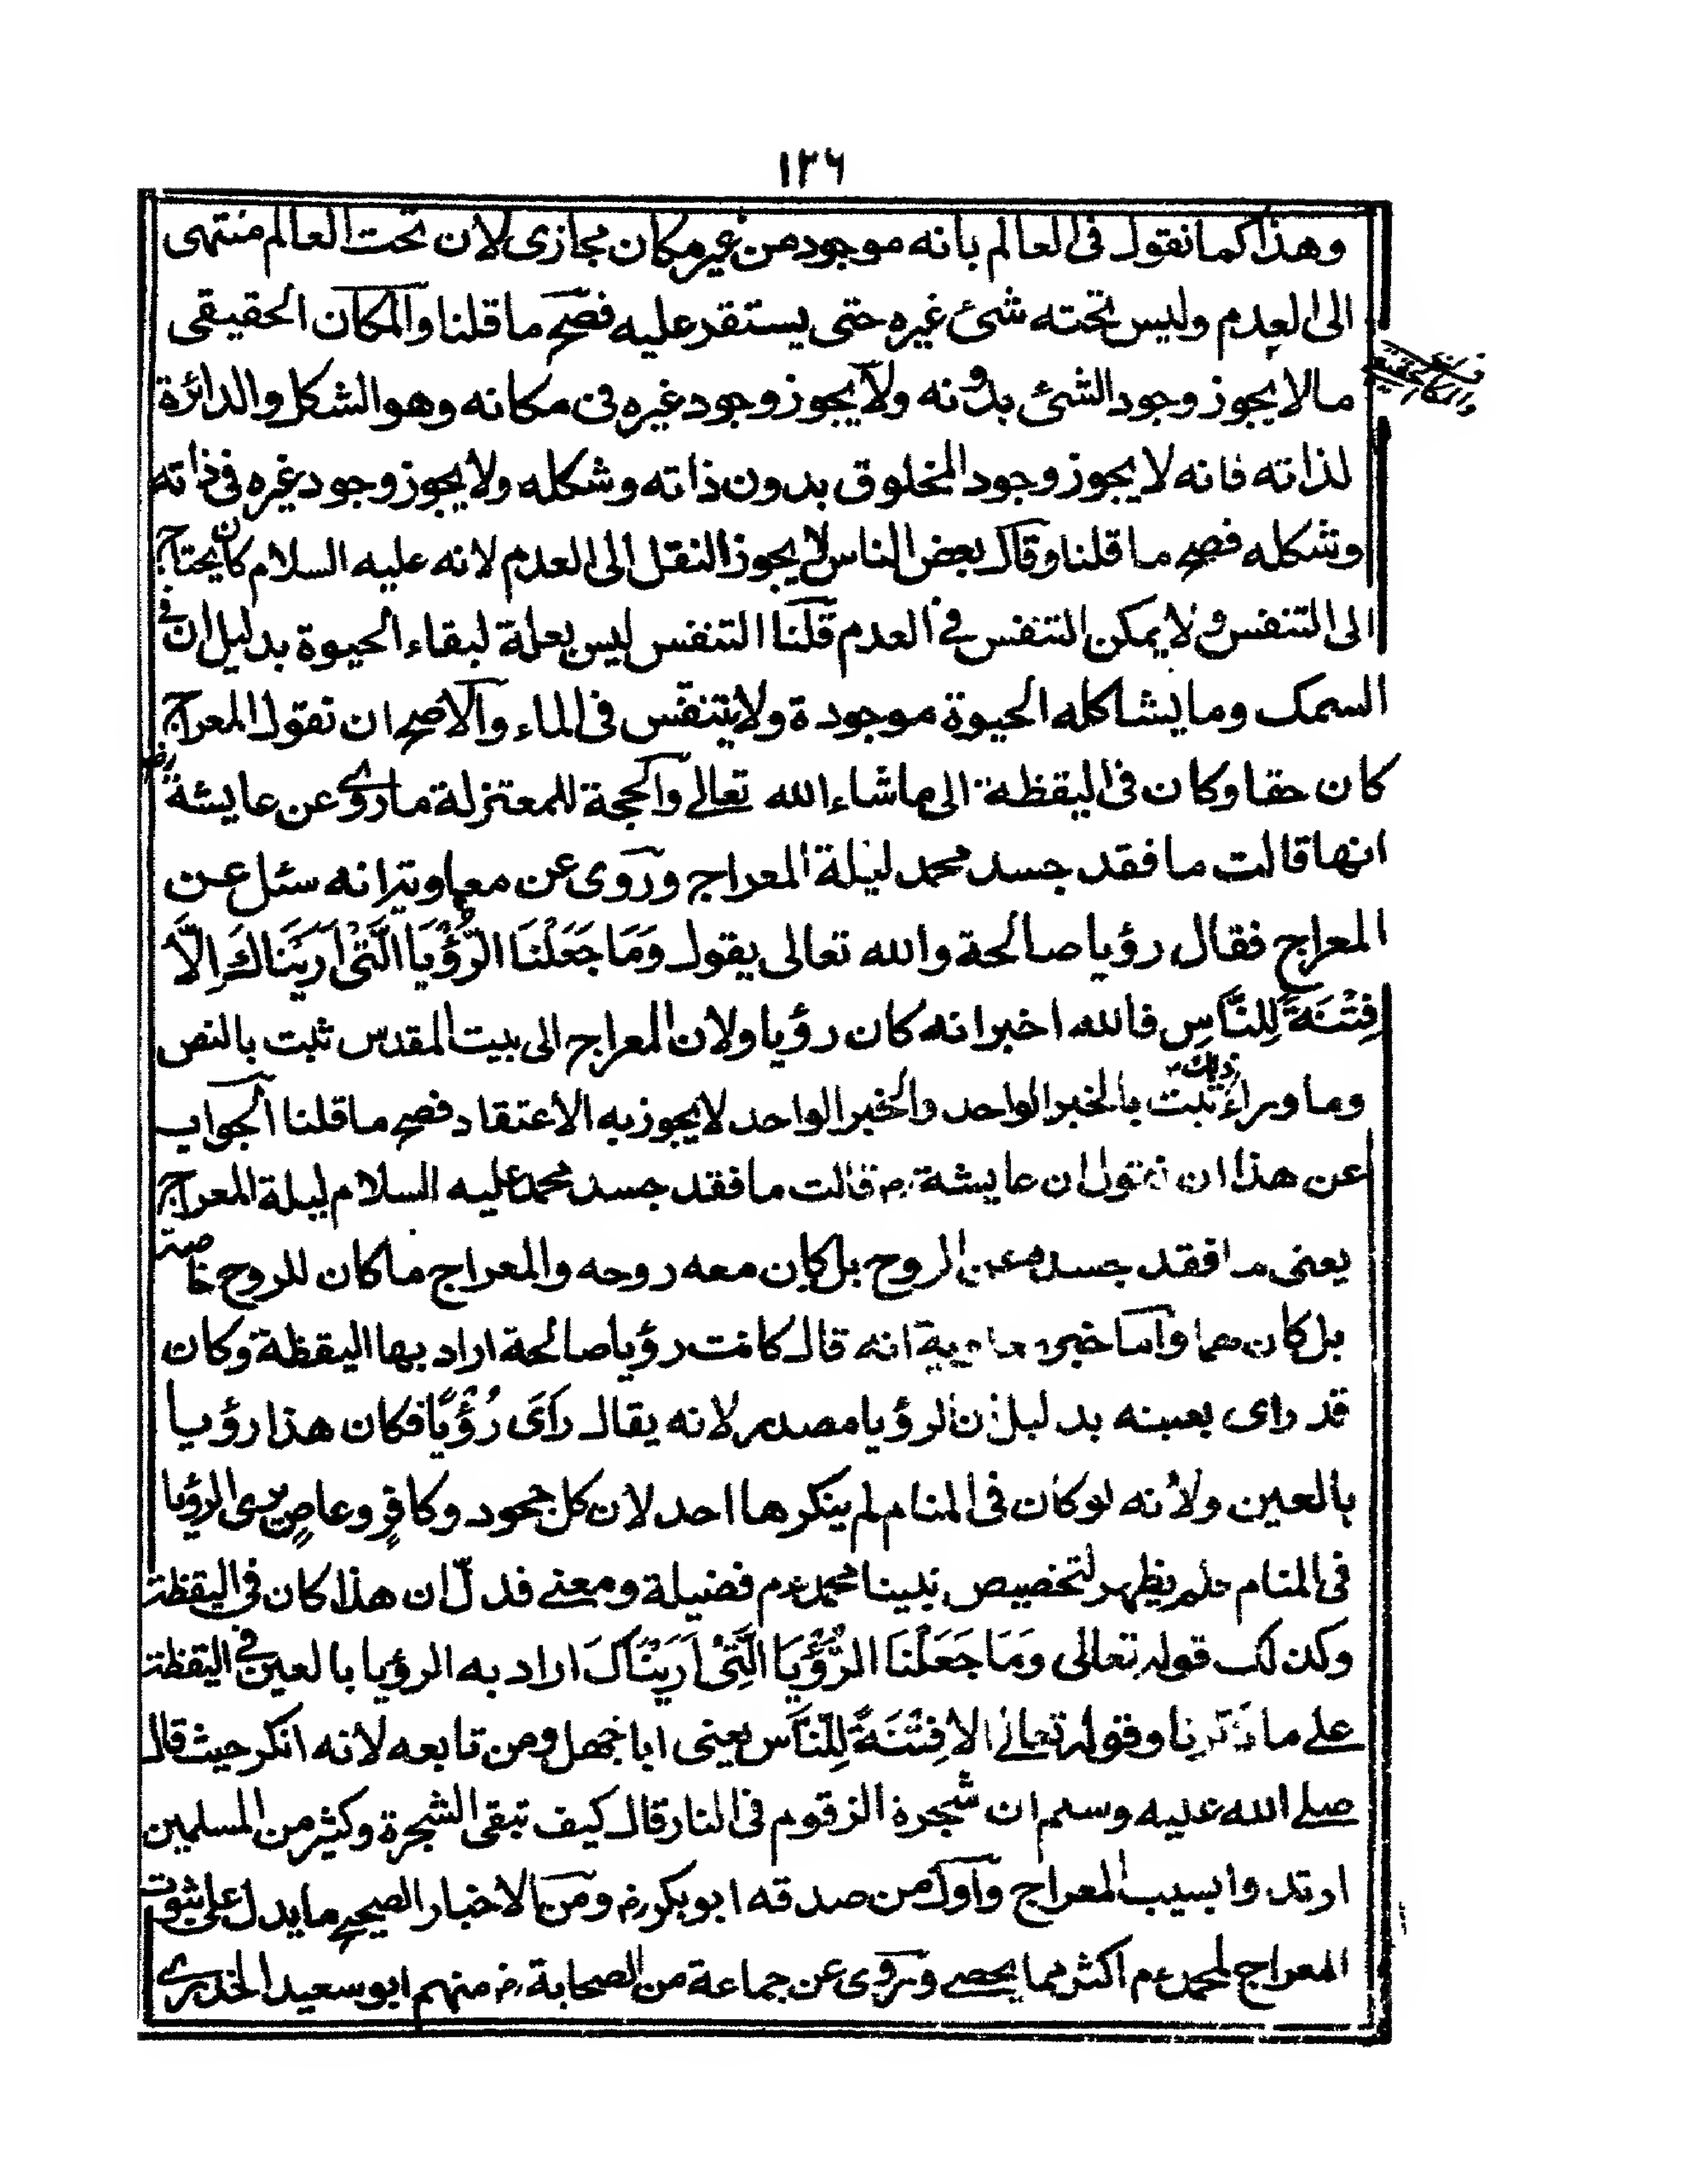 ١٢٦
وهذا كما نقول فى العالم بانه موجود من غير مكان مجازى لان تحت العالم منتهى
الى العدم وليس تحته شئ غيره حتى يستقر عليه فصح ما قلنا والمكان الحقيقى
مالا يجوز وجود الشئ بدونه ولا يجوز وجود غيره فى مكانه وهو الشكل والدائرة
لذاته فانه لا يجوز وجود المخلوق بدون ذاته وشكله ولا يجوز وجود غيره فى ذاته
وشكله فصح ما قلنا وقال بعض الناس لا يجوز النقل الى العدم لانه عليه السلام كان يحتاج
الى التنفس ولا يمكن التنفس فى العدم قلنا التنفس ليس بعلة لبقاء الحيوة بدليل ان فى
السمك وما يشاكله الحيوة موجودة ولا يتنفس فى الماء والاصح ان نقول المعراج
كان حقا وكان فى اليقظة الى ماشاء الله تعالے والحجة للمعتزلة ما روے عن عايشة رض
انها قالت ما فقد جسد محمد ليلة المعراج وروى عن معاوية انه سئل عن
المعراج فقال رؤيا صالحة والله تعالى يقول وَمَا جَعَلْنَا الرُّؤْيَا الَّتِىْ اَرَيْنَاكَ اِلَّا
فِتْنَةً لِلنَّاسِ فالله اخبر انه كان رؤيا ولان المعراج الى بيت المقدس ثبت بالنص
وما وراء ذلك ثبت بالخبر الواحد والخبر الواحد لا يجوز به الاعتقاد فصح ما قلنا الجواب
عن هذا ان نقول ان عايشة رض قالت ما فقد جسد محمد عليه السلام ليلة المعراج
يعنى ما فقد جسده عن الروح بل كان معه روحه والمعراج ما كان للروح خاصة
بل كان هما واما خبر معاوية انه قال كانت رؤيا صالحة اراد بها اليقظة وكان
قد راى بعينه بدليل ان الرؤيا مصدر لانه يقال رَاَى رُؤْيًا فكان هذا رؤيا
بالعين ولانه لو كان فى المنام لم ينكرها احد لان كل جحود وكافرٍ وعاصٍ يرى الرؤيا
فى المنام فلم يظهر لتخصيص نبينا محمد عم فضيلة ومعنے فدلّ ان هذا كان فى اليقظة
وكذلك قوله تعالى وَمَا جَعَلْنَا الرُّؤْيَا الَّتِىْ اَرَيْنَاكَ اراد به الرؤيا بالعين فى اليقظة
علے ما ذكرنا وقوله تعالے الا فِتْنَةً لِلنَّاسِ يعنى ابا جهل ومن تابعه لانه انكر حيث قال
صلے الله عليه وسلم ان شجرة الزقوم فى النار قال كيف تبقى الشجرة وكثير من المسلمين
ارتدوا بسبب المعراج واول من صدقه ابو بكر رض ومن الاخبار الصحيح ما يدل على ثبوت
المعراج لمحمد عم اكثر مما يحصے وروى عن جماعة من الصحابة رض منهم ابو سعيد الخدرى